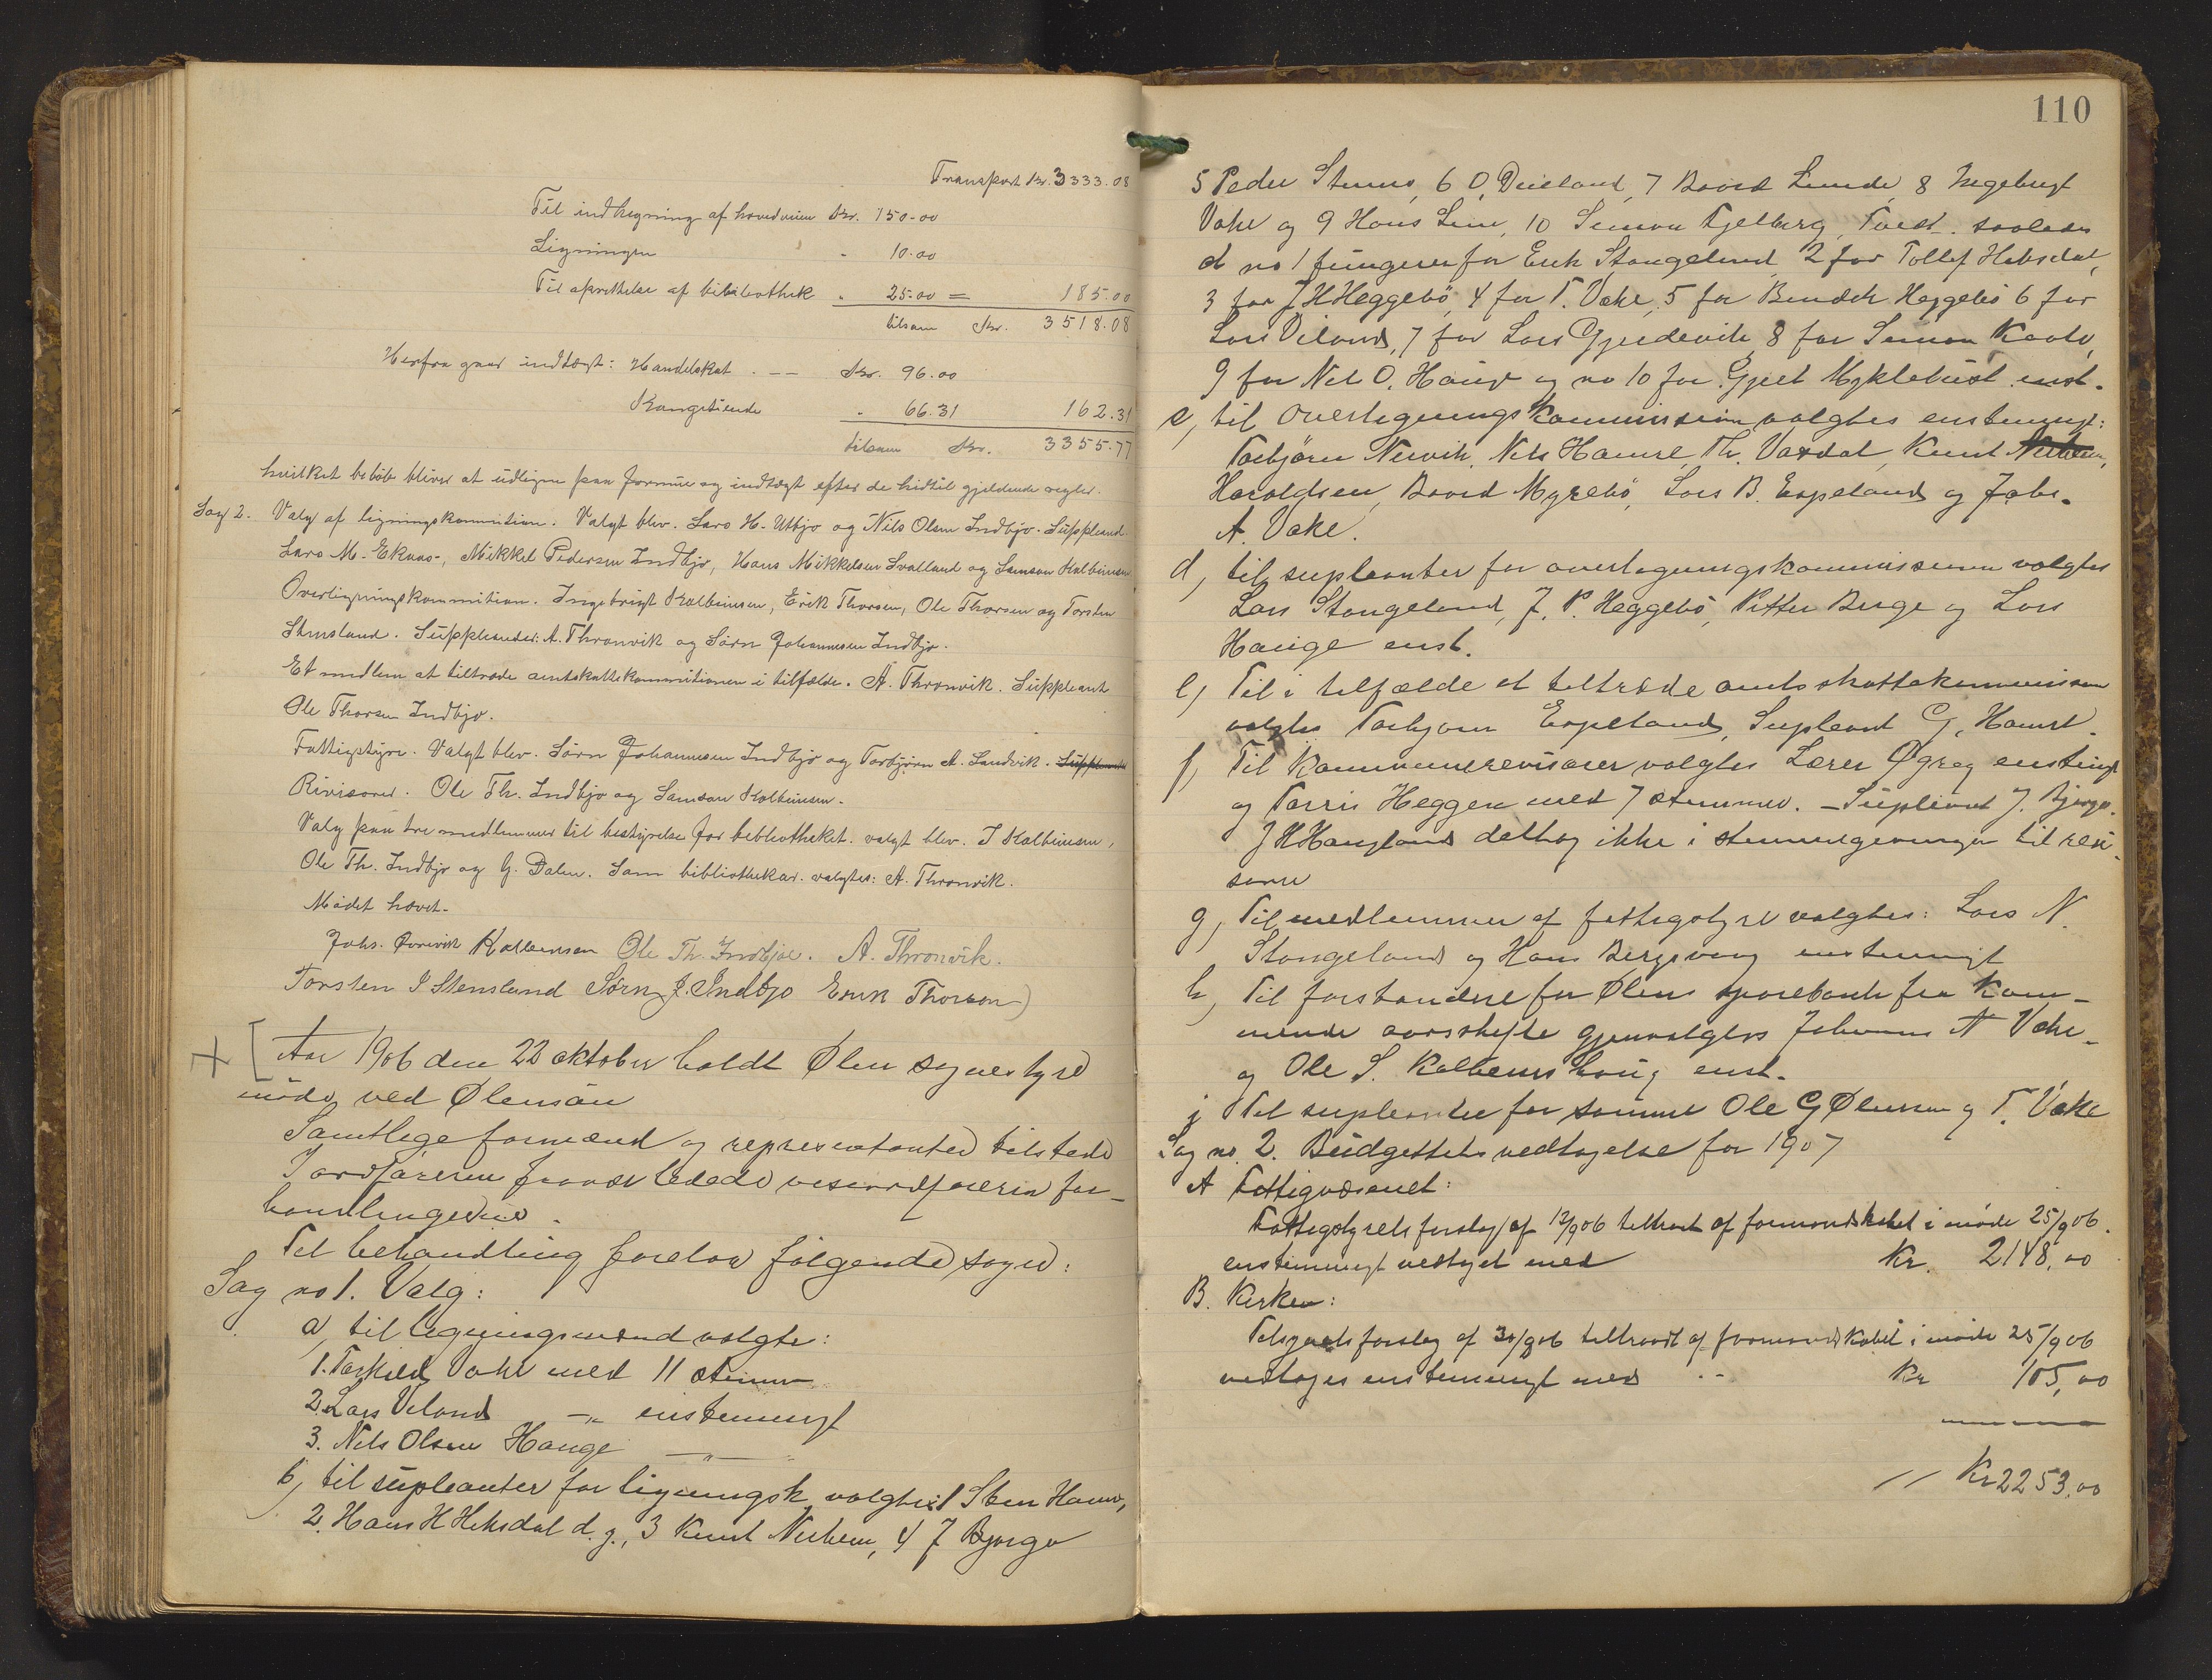 Transport Kr. 3333.08
Til indhegning af hovedveien Kr. 150.00
Ligningen " 10.00
Til oprettelse af bibliothek " 25.00 = 185.00
tilsam Kr. 3518.08
Herfra gaar indtægt: Handelskat . — Kr. 96.00
Kongetiende " 66.31 162.31
tilsam Kr. 3355.77
hvilket beløb bliver at udligne paa formue og indtægt efter de hidtil gjældende regler.
Sag 2. Valg af ligningskommition. Valgt blev. Lars H. Utbjo og Nils Olsen Indbjo. Suppleand
Lars M. Ekaas, Mikkel Pedersen Indbjo, Hans Mikkelsen Svolland og Samson Kolbeinsen
Overligningskommition. Ingebrigt Kolbeinsen, Erik Thorsen, Ole Thorsen og Torsten
Stensland. Suppleander: A. Thronvik og Sørn Johannesen Indbjo.
Et medlem at tiltræde amtskattekommitionen i tilfælde. A. Thronvik. Suppleant
Ole Thorsen Indbjo.
Fattigstyre. Valgt blev. Sørn Johannesen Indbjo og Torbjørn A. Sandvik.
Rivisorer. Ole Th. Indbjo og Samson Kolbeinsen.
Valg paa tre medlemmer til bestyrelse for bebliotheket. valgt blev. I Kolbeinsen,
Ole Th. Indbjo og G. Dalen. Som bibliothekar valgtes: A. Thronvik.
Mødet hævet.
Johs. Kolbeinsen Ole Th. Indbjoe. A. Thronvik.
Torsten I Stensland Sørn J. Indbjo Erik Thorson
Aar 1906 den 22 oktober holdt Ølen sognestyre
møde ved Ølensøen
Samtlige formænd og representanter tilstede
I ordførerens fravær ledede viseordføreren for-
handlingerne.
Til behandling forelaa følgende sager:
Sag no 1. Valg:
a, til ligningsmænd valgte:
1. Torkild Vake med 11 stemmer
2. Lars Veland —"— enstemmigt
3. Nils Olsen Hauge —"—
b, til supleanter for ligningsk. valgtes: 1 Sten Hamre,
2. Hans H Heksdal d.y., 3 Knut Nerheim, 4 J Bjorge
110
5 Peder Stumo, 6 O, Dueland, 7 Baard Lunde, 8 Ingebrigt
Vake og 9 Hans Lunn, 10 Simon Fjelberg, Tveit. saaledes
at no 1 fungerer for Erik Stangeland 2 for Tollef Heksdal,
3 for J H Heggebø, 4 for T. Vake, 5 for Bendik Heggebø 6 for
Lars Veland, 7 for Lars Gjerdevik, 8 for Simon
9 for Nils O. Hauge og no 10 for Gjert Myklebust enst.
c, til overligningskommission valgtes enstemmigt:
Torbjørn Nervik, Nils Hamre, Th. Vaxdal, Knut
Haraldsen, Baard Myrebø, Lars B. Espeland og Johs.
A. Vake.
d, til supleanter for overligningskommissionen valgtes
Lars Stangeland, J. P. Heggebø, Petter Berge og Lars
Hauge enst.
e, Til i tilfælde at tiltræde amtsskattekommission
valgtes Torbjørn Espeland, Supleant G. Hamre.
f, Til kommunerevisorer valgtes Lærer Øgreg enstemgt
og Torris Heggen med 7 stemmer. — Supleant J. Bjorge.
J H Haugland deltog ikke i stemmegivningen til revi-
sorer
g, Til medlemmer af fattigstyre valgtes: Lars N.
Stangeland og Hans Bergsvaag enstemmigt
h, Til forstandere for Ølens sparebank fra kom-
mende aarsskifte gjenvalgtes Johannes A Vake
og Ole S. Kolbeinshaug enst.
j Til supleanter for samme Ole G Ølensen og T. Vake
Sag no. 2. Budgettets vedtagelse for 1907
A Fattigvæsenet:
Fattigstyrets forslag af 12/9 06 tiltraadt af formandskabet i møde 25/9 06.
enstemmigt vedtaget med Kr. 2148,00
B. Kirken:
Tilsynets forslag af 30/8 06 tiltraadt af formandskabet i møde 25/9 06
vedtages enstemmigt med .. Kr 105,00
Kr 2253,00